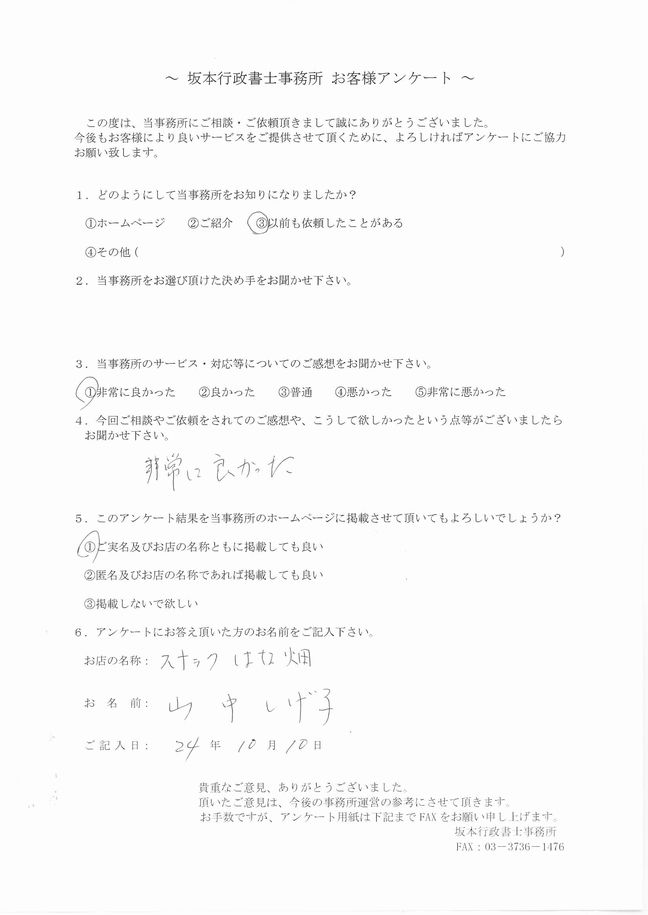 ～ 坂本行政書士事務所 お客様アンケート ～
この度は、当事務所にご相談・ご依頼頂きまして誠にありがとうございました。
今後もお客様により良いサービスをご提供させて頂くために、よろしければアンケートにご協力
お願い致します。
１．どのようにして当事務所をお知りになりましたか？
①ホームページ ②ご紹介 ③以前も依頼したことがある
④その他（ ）
２．当事務所をお選び頂けた決め手をお聞かせ下さい。
３．当事務所のサービス・対応等についてのご感想をお聞かせ下さい。
①非常に良かった ②良かった ③普通 ④悪かった ⑤非常に悪かった
４．今回ご相談やご依頼をされてのご感想や、こうして欲しかったという点等がございましたら
お聞かせ下さい。
非常に良かった
５．このアンケート結果を当事務所のホームページに掲載させて頂いてもよろしいでしょうか？
①ご実名及びお店の名称ともに掲載しても良い
②匿名及びお店の名称であれば掲載しても良い
③掲載しないで欲しい
６．アンケートにお答え頂いた方のお名前をご記入下さい。
お店の名称： スナック はな畑
お 名 前： 山中しげ子
ご記入日： 24 年 10 月 10 日
貴重なご意見、ありがとうございました。
頂いたご意見は、今後の事務所運営の参考にさせて頂きます。
お手数ですが、アンケート用紙は下記まで FAX をお願い申し上げます。
坂本行政書士事務所
FAX：03－3736－1476